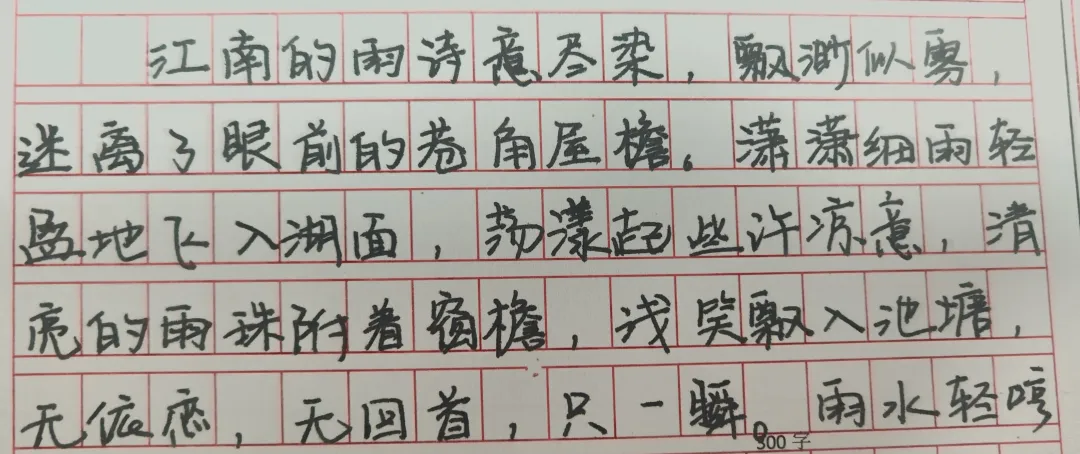 江南的雨诗意尽染，飘渺似雾，
迷离了眼前的巷角屋檐。潇潇细雨轻
盈地飞入湖面，荡漾起些许凉意，清
亮的雨珠附着窗檐，浅笑飘入池塘，
无依恋，无回首，只一瞬。雨水轻哼
300字